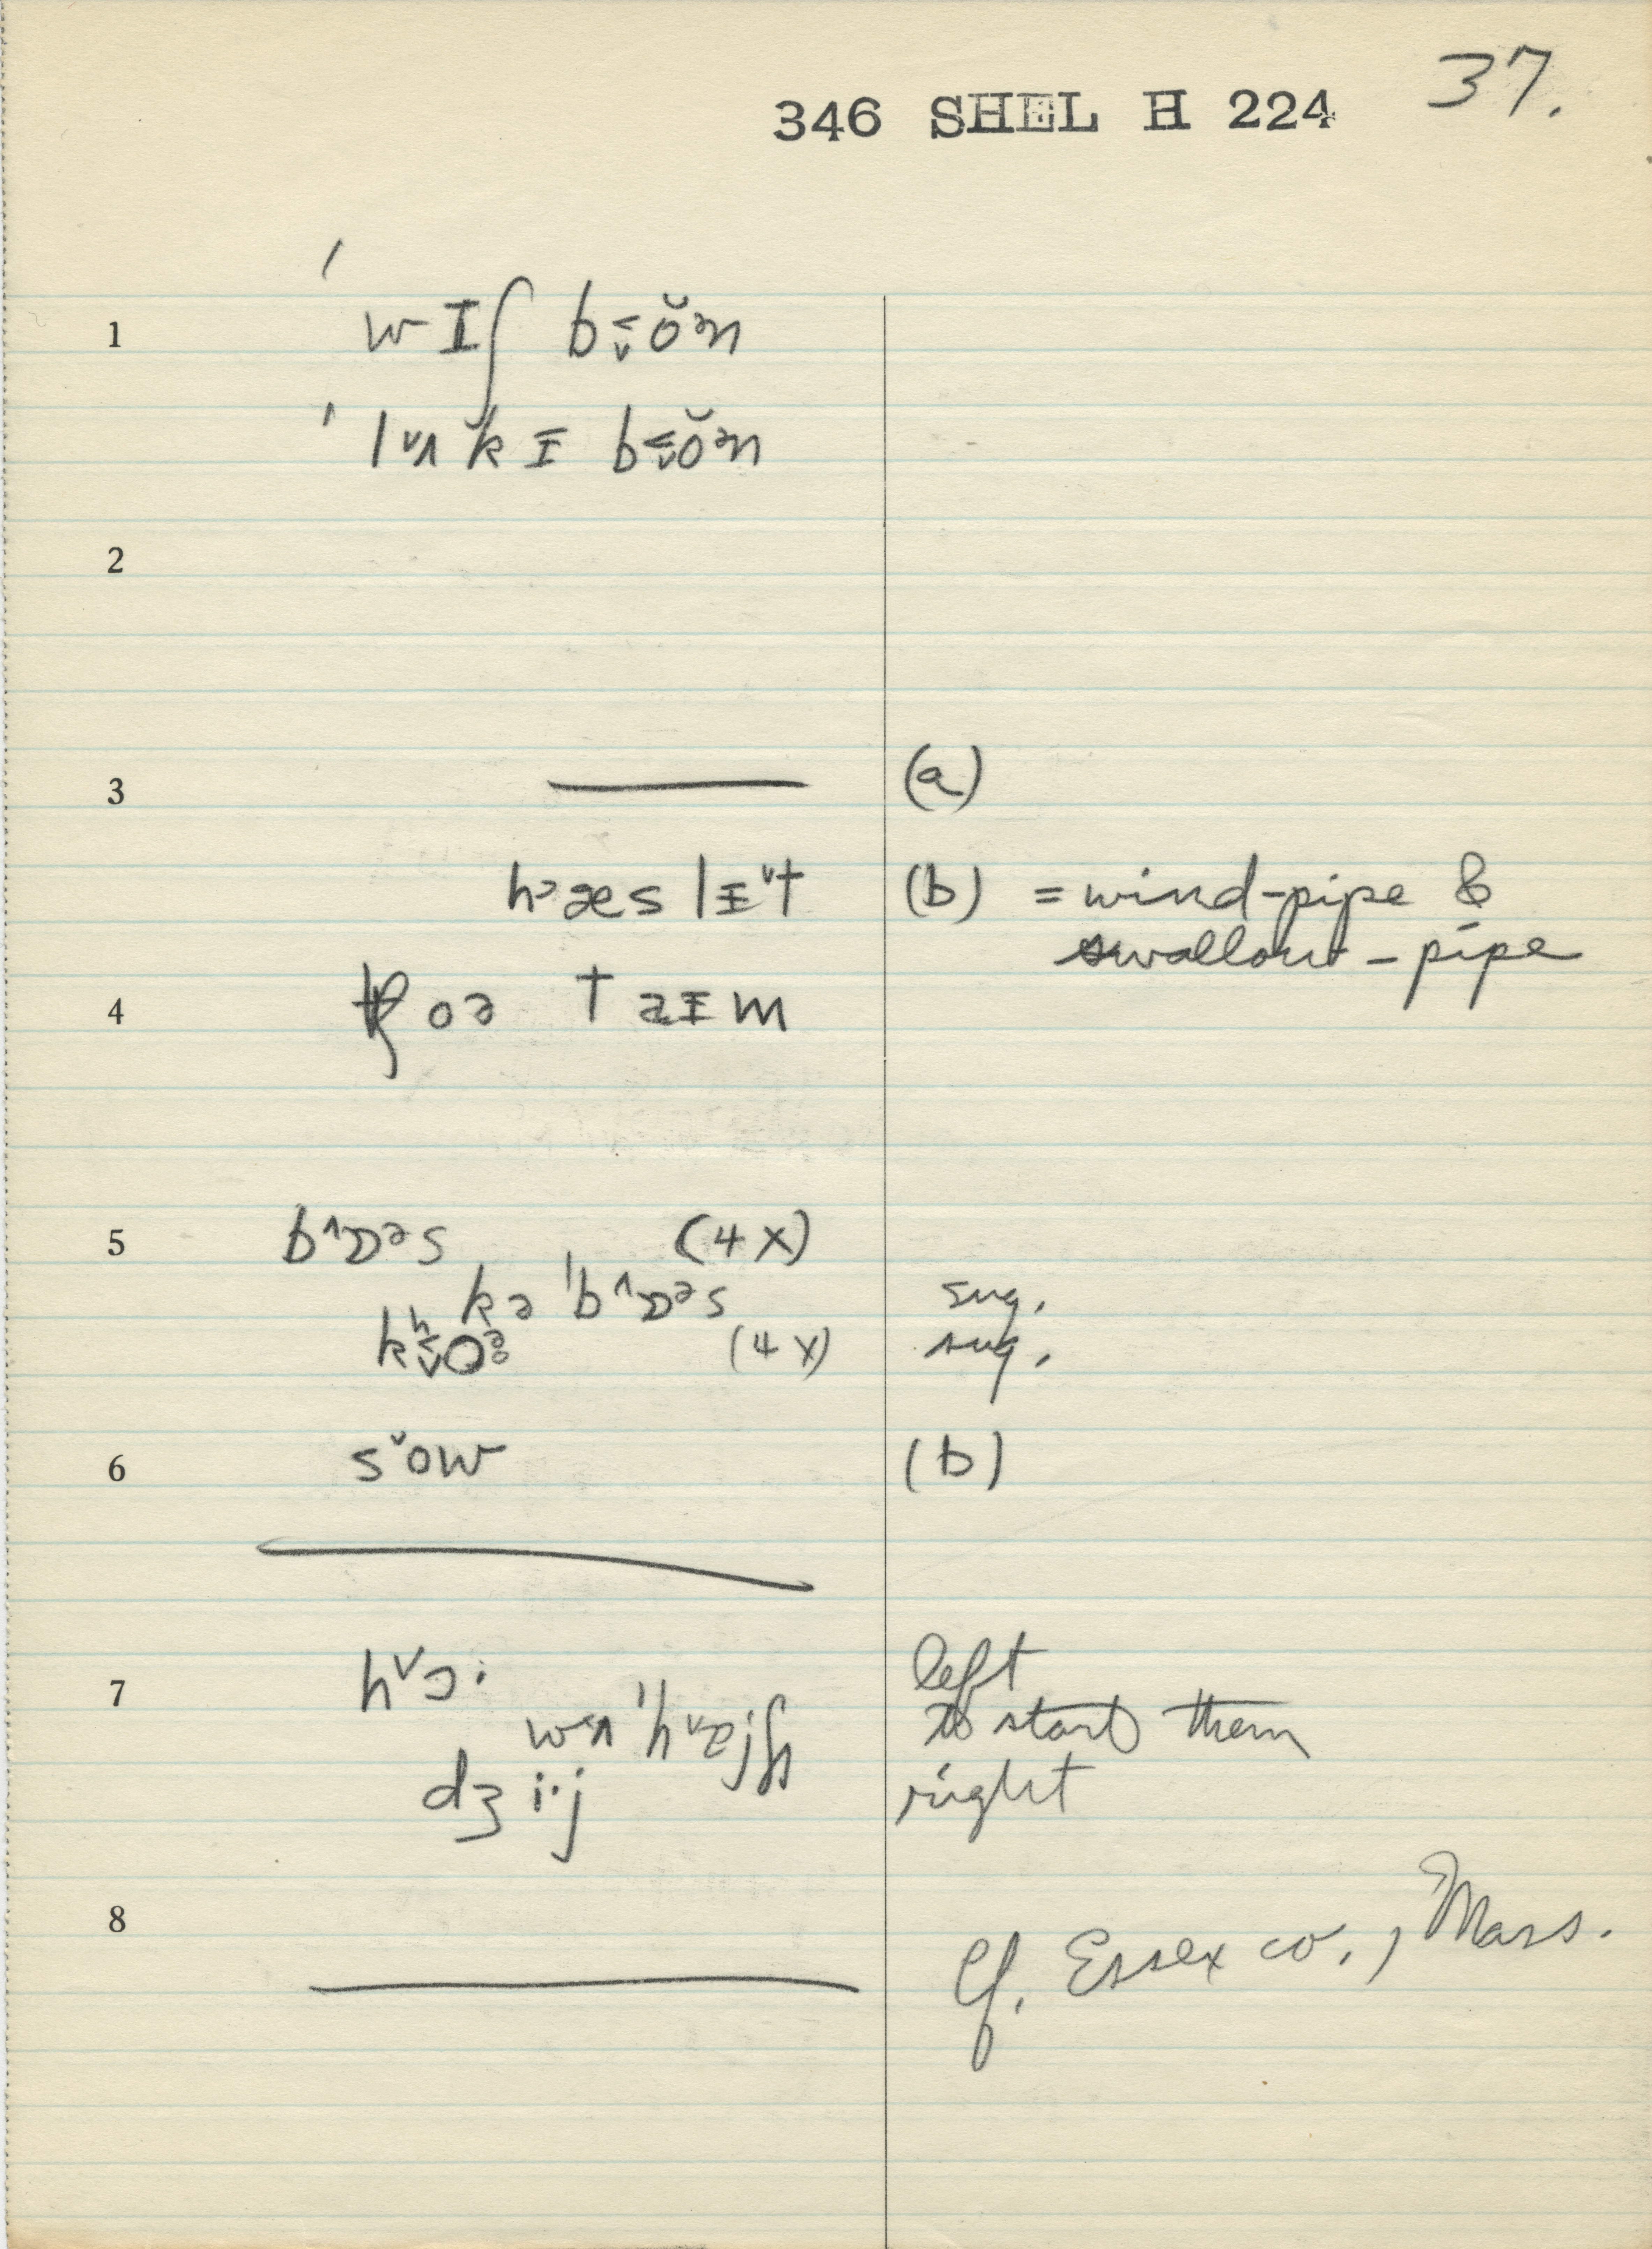 346 SHEL H 224 37.
1 ˈwɪʃ b˂ˬŏᵊn
ˈlˇʌkɪ b˂ˬŏᵊn
2
3 (a)
hᵊæslɪˇt (b) = wind-pipe &
swallow-pipe
4 tʃoə taɪm
5 b^ɒᵊs (4X)
kəˈb^ɒᵊs sug.
kʰ˂ˬoᵊ (4X) sug.
6 sˇow (b)
7 hˇɔ· left
w˂ʌˈhˇɐjʃ to start them
dʒi·j right
8 Cf. Essex co., Mass.